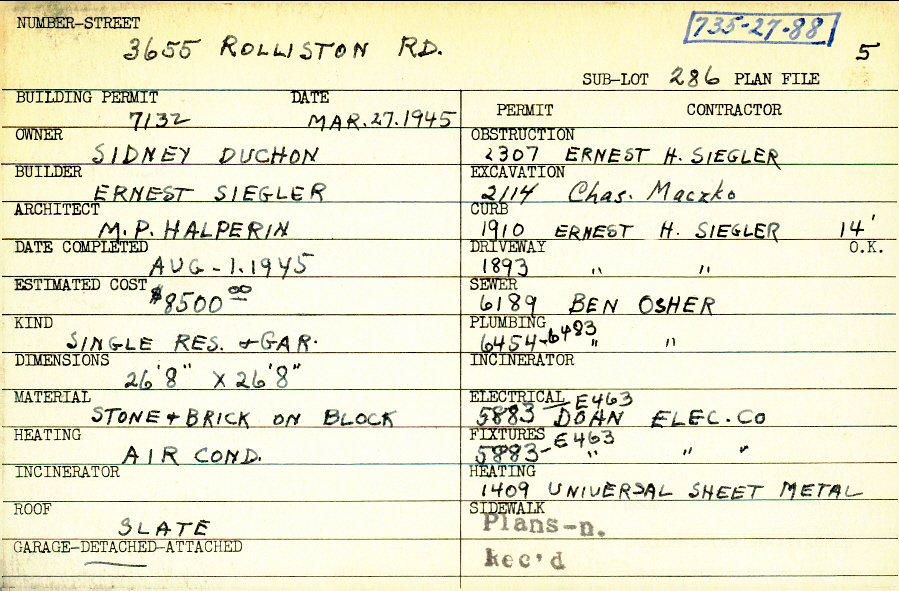 NUMBER-STREET 735-27-88
3655 ROLLISTON RD. 5
SUB-LOT 286 PLAN FILE
BUILDING PERMIT DATE
7132 MAR.27.1945
PERMIT CONTRACTOR
OWNER
SIDNEY DUCHON
OBSTRUCTION
2307 ERNEST H. SIEGLER
BUILDER
ERNEST SIEGLER
EXCAVATION
2114 Chas. Maczko
ARCHITECT
M.P. HALPERIN
CURB
1910 ERNEST H. SIEGLER 14'
DATE COMPLETED
AUG-1.1945
DRIVEWAY O.K.
1893 " "
ESTIMATED COST
$8500.00
SEWER
6189 BEN OSHER
KIND
SINGLE RES. + GAR.
PLUMBING
6454-6483 " "
DIMENSIONS
26'8" X 26'8"
INCINERATOR
MATERIAL
STONE + BRICK ON BLOCK
ELECTRICAL E463
5883 DOAN ELEC. CO
HEATING
AIR COND.
FIXTURES E463
5883- " " "
INCINERATOR
HEATING
1409 UNIVERSAL SHEET METAL
ROOF
SLATE
SIDEWALK
Plans-n.
GARAGE-DETACHED-ATTACHED
Rec'd